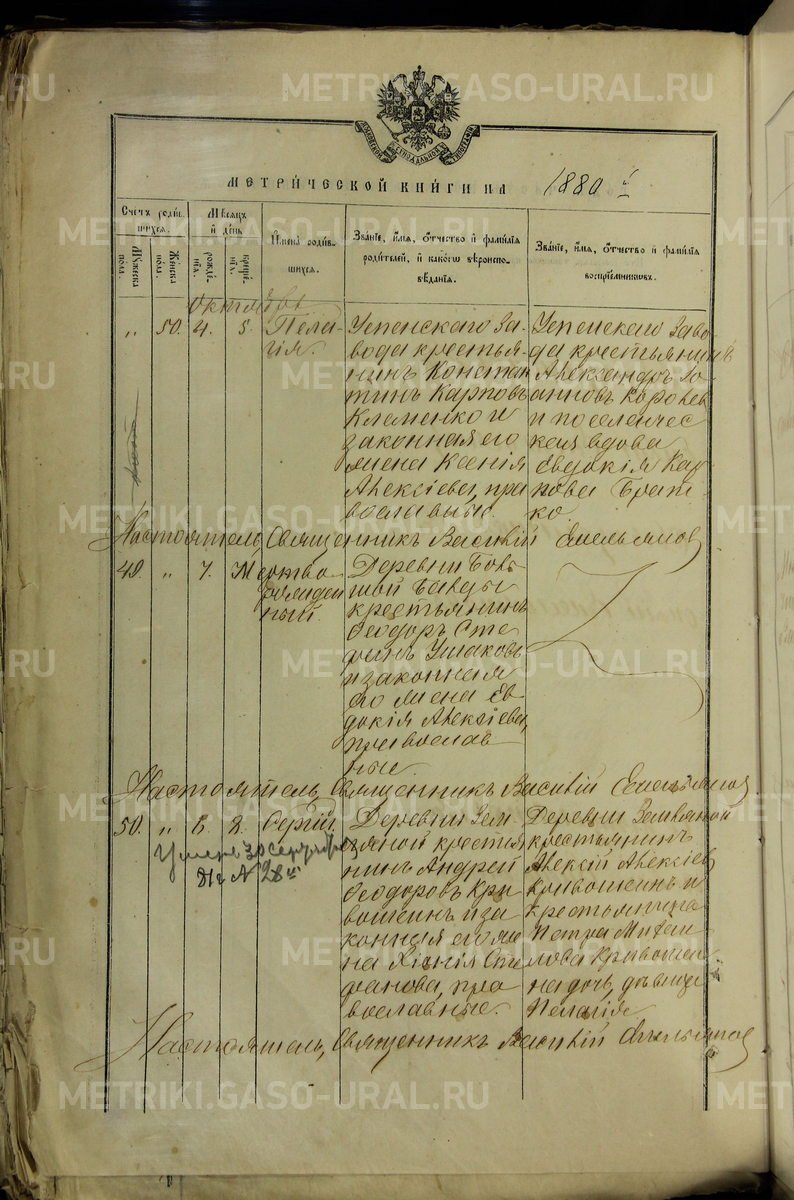 МЕТРИ́ЧЕСКОЙ КНИ́ГИ НА 1880 й
Счетъ роди́вшихся.
Мѣсяцъ и́ дéнь
И҆менà роди́вшихся.
Звáнїе, и҆́мя, ѻ҆́тчество и҆ фами́лїя роди́телей, и҆ какóгѡ вѣроисповѣ́данїя.
Звáнїе, и҆́мя, ѻ҆́тчество и҆ фами́лїя воспрїéмниковъ.
Мꙋ́жеска пóла.
Жéнска пóла.
рождéнїѧ.
крещéнїѧ.
Октябрь
„ 50. 4. 5. Пела-
гія.
Успенскаго За-
вода крестья-
нинъ Констан
тинъ Карповъ
Клеменко и
законная его
жена Ксенія
Алексіева, пра
вославные.
Успенскаго Заво
да крестьянинъ
Александръ Іо-
анновъ Королев
и поселенчес
кая вдова
Евдокія Кар
пова Брат-
ко.
Настоятель, Священникъ Василій Емельяновъ
49. „ 7. Мертво-
рожден
ный.
Деревни Боль-
шой
крестьянинъ
Ѳеодоръ Сте
фанъ Ушаковъ
и законная
его жена Ев-
докія Алексіева,
православ
ные.
Настоятель, Священникъ Василій Емельяновъ
50. „ 6. 8. Сергій.
Умеръ
№ 28й
Деревни Зем-
ляной крестья
нинъ Андрей
Ѳеодоровъ Кри
вошеинъ и за
конная его же
на Хіонія Сте
фанова, пра
вославные.
Деревни Земляной
крестьянинъ
Алексій Алексіев
Кривошеинъ и
крестьянина
Петра Михаи
лова Кривошеи
на дочь, дѣвица
Пелагія.
Настоятель, Священникъ Василій Емельянов
METRIKI.GASO-URAL.RU